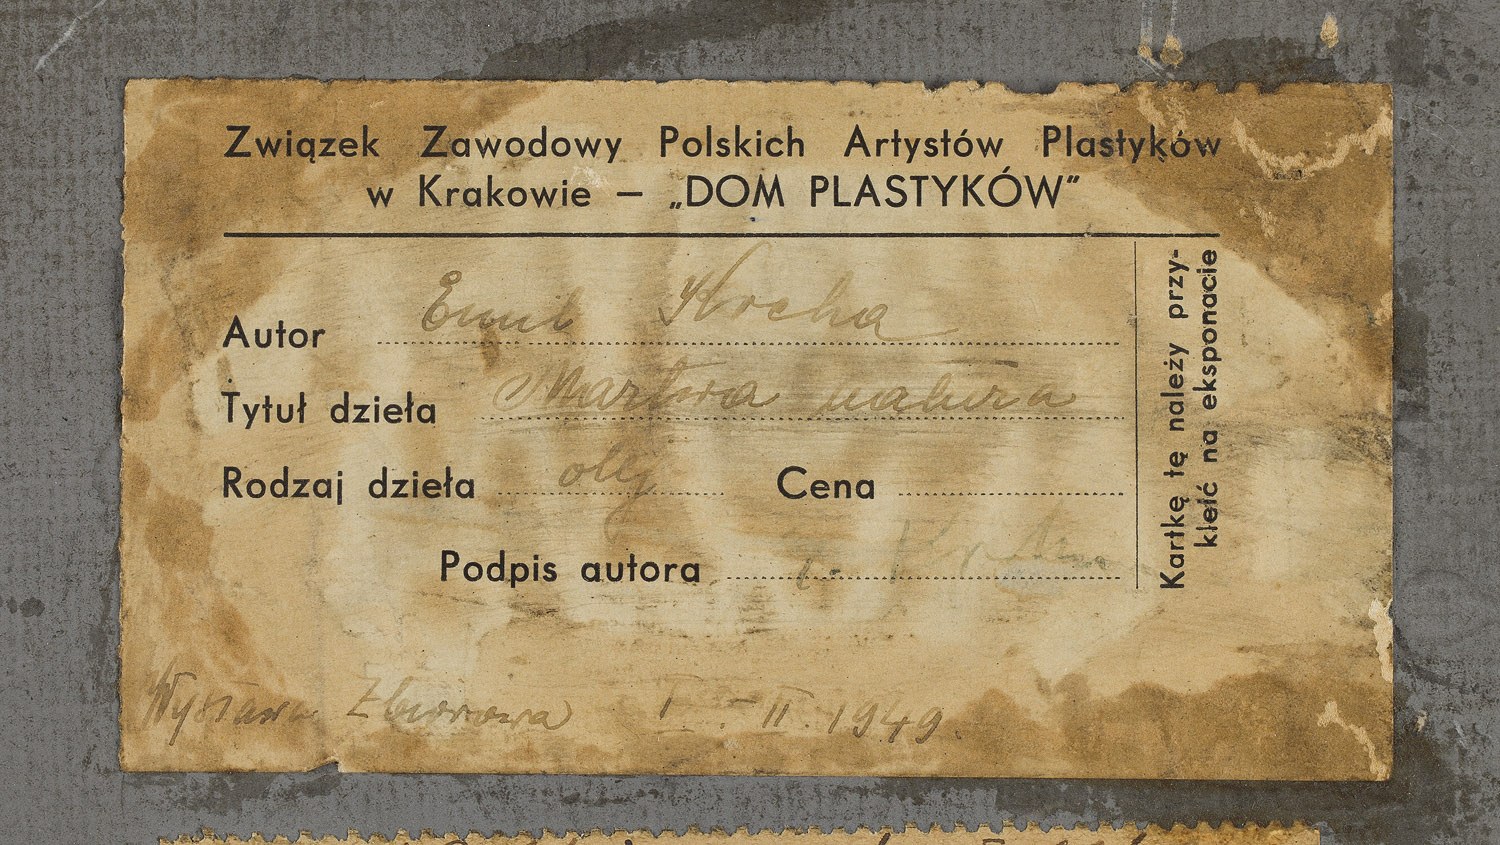 Związek Zawodowy Polskich Artystów Plastyków
w Krakowie — „DOM PLASTYKÓW”
Autor Emil Krcha
Tytuł dzieła Martwa natura
Rodzaj dzieła olej Cena
Podpis autora
Kartkę tę należy przy-
kleić na eksponacie
Wystawa Zbiorowa I - II. 1949.